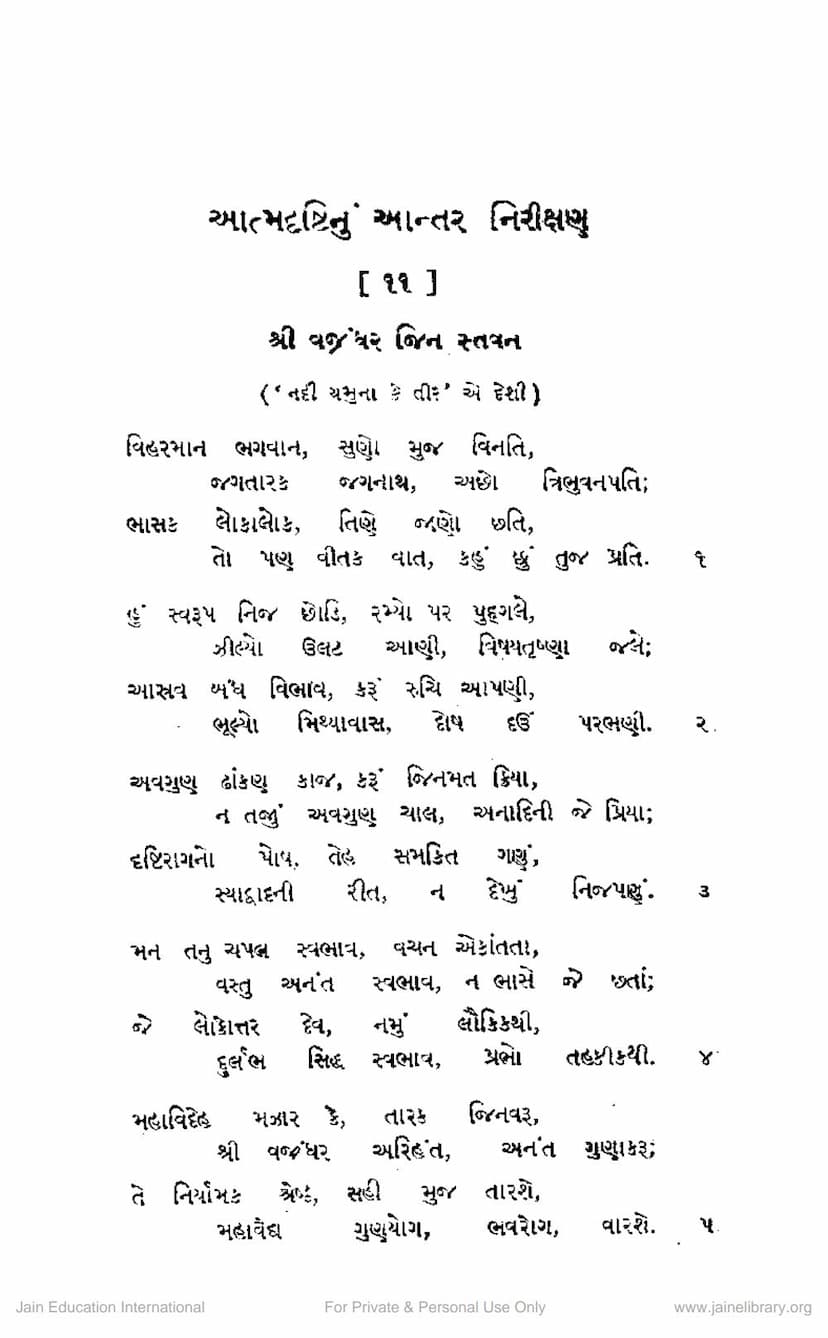 આત્મદૃષ્ટિનું આન્તર નિરીક્ષણ
[ ૧૧ ]
શ્રી વજ્રંધર જિન સ્તવન
(‘નદી યમુના કે તીર’ એ દેશી)
વિહરમાન ભગવાન, સુણો મુજ વિનતિ,
જગતારક જગનાથ, અછો ત્રિભુવનપતિ;
ભાસક લોકાલોક, તિણે જાણો છતિ,
તો પણ વીતક વાત, કહું છું તુજ પ્રતિ. ૧
હું સ્વરૂપ નિજ છોડિ, રમ્યો પર પુદ્ગલે,
ઝીલ્યો ઉલટ આણી, વિષયતૃષ્ણા જલે;
આસ્રવ બંધ વિભાવ, કરૂં રુચિ આપણી,
ભૂલ્યો મિથ્યાવાસ, દોષ દઉં પરભણી. ૨
અવગુણ ઢાંકણ કાજ, કરૂં જિનમત ક્રિયા,
ન તજું અવગુણ ચાલ, અનાદિની જે પ્રિયા;
દૃષ્ટિરાગનો પોષ, તેહ સમકિત ગણું,
સ્યાદ્વાદની રીત, ન દેખું નિજપણું. ૩
મન તનુ ચપલ સ્વભાવ, વચન એકાંતતા,
વસ્તુ અનંત સ્વભાવ, ન ભાસે જે છતાં;
જે લોકોત્તર દેવ, નમું લૌકિકથી,
દુર્લભ સિદ્ધ સ્વભાવ, પ્રભો તહકીકથી. ૪
મહાવિદેહ મઝાર કે, તારક જિનવરૂ,
શ્રી વજ્રંધર અરિહંત, અનંત ગુણાકરૂ;
તે નિર્યામક શ્રેષ્ઠ, સહી મુજ તારશે,
મહાવૈદ્ય ગુણયોગ, ભવરોગ, વારશે. ૫
Jain Education International For Private & Personal Use Only www.jainelibrary.org